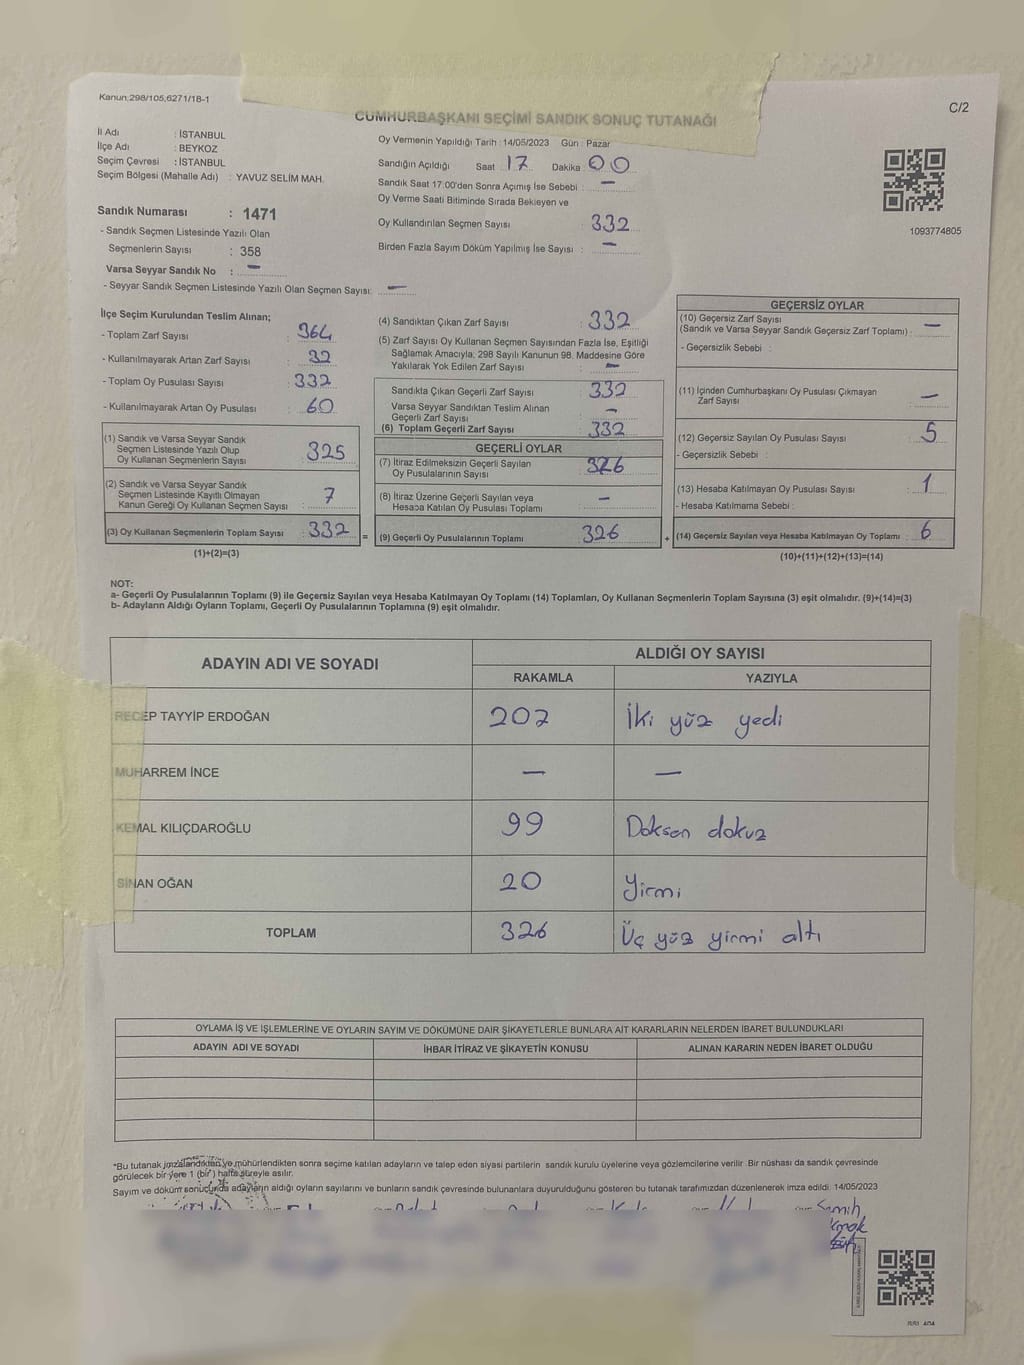 Kanun,298/105,6271/18-1
C/2
CUMHURBAŞKANI SEÇİMİ SANDIK SONUÇ TUTANAĞI
İl Adı : İSTANBUL
İlçe Adı : BEYKOZ
Seçim Çevresi : İSTANBUL
Seçim Bölgesi (Mahalle Adı) : YAVUZ SELİM MAH.
Oy Vermenin Yapıldığı Tarih : 14/05/2023 Gün : Pazar
Sandığın Açıldığı Saat 17 Dakika 00
Sandık Saat 17:00'den Sonra Açımış İse Sebebi : —
Oy Verme Saati Bitiminde Sırada Bekleyen ve
Oy Kullandırılan Seçmen Sayısı 332
Birden Fazla Sayım Döküm Yapılmış İse Sayısı : —
1093774805
Sandık Numarası : 1471
- Sandık Seçmen Listesinde Yazılı Olan
Seçmenlerin Sayısı : 358
Varsa Seyyar Sandık No : —
- Seyyar Sandık Seçmen Listesinde Yazılı Olan Seçmen Sayısı: —
İlçe Seçim Kurulundan Teslim Alınan;
- Toplam Zarf Sayısı : 364
- Kullanılmayarak Artan Zarf Sayısı : 32
- Toplam Oy Pusulası Sayısı : 332
- Kullanılmayarak Artan Oy Pusulası : 60
(1) Sandık ve Varsa Seyyar Sandık
Seçmen Listesinde Yazılı Olup
Oy Kullanan Seçmenlerin Sayısı : 325
(2) Sandık ve Varsa Seyyar Sandık
Seçmen Listesinde Kayıtlı Olmayan
Kanun Gereği Oy Kullanan Seçmen Sayısı : 7
(3) Oy Kullanan Seçmenlerin Toplam Sayısı : 332
(1)+(2)=(3)
=
(4) Sandıktan Çıkan Zarf Sayısı : 332
(5) Zarf Sayısı Oy Kullanan Seçmen Sayısından Fazla İse, Eşitliği
Sağlamak Amacıyla, 298 Sayılı Kanunun 98. Maddesine Göre
Yakılarak Yok Edilen Zarf Sayısı : —
Sandıkta Çıkan Geçerli Zarf Sayısı : 332
Varsa Seyyar Sandıktan Teslim Alınan
Geçerli Zarf Sayısı : —
(6) Toplam Geçerli Zarf Sayısı : 332
GEÇERLİ OYLAR
(7) İtiraz Edilmeksizin Geçerli Sayılan
Oy Pusulalarının Sayısı : 326
(8) İtiraz Üzerine Geçerli Sayılan veya
Hesaba Katılan Oy Pusulası Toplamı : —
(9) Geçerli Oy Pusulalarının Toplamı : 326
+
GEÇERSİZ OYLAR
(10) Geçersiz Zarf Sayısı
(Sandık ve Varsa Seyyar Sandık Geçersiz Zarf Toplamı) : —
- Geçersizlik Sebebi :
(11) İçinden Cumhurbaşkanı Oy Pusulası Çıkmayan
Zarf Sayısı : —
(12) Geçersiz Sayılan Oy Pusulası Sayısı : 5
- Geçersizlik Sebebi :
(13) Hesaba Katılmayan Oy Pusulası Sayısı : 1
- Hesaba Katılmama Sebebi :
(14) Geçersiz Sayılan veya Hesaba Katılmayan Oy Toplamı : 6
(10)+(11)+(12)+(13)=(14)
NOT:
a- Geçerli Oy Pusulalarının Toplamı (9) ile Geçersiz Sayılan veya Hesaba Katılmayan Oy Toplamı (14) Toplamları, Oy Kullanan Seçmenlerin Toplam Sayısına (3) eşit olmalıdır. (9)+(14)=(3)
b- Adayların Aldığı Oyların Toplamı, Geçerli Oy Pusulalarının Toplamına (9) eşit olmalıdır.
ADAYIN ADI VE SOYADI ALDIĞI OY SAYISI
RAKAMLA YAZIYLA
RECEP TAYYİP ERDOĞAN 207 İki yüz yedi
MUHARREM İNCE — —
KEMAL KILIÇDAROĞLU 99 Doksan dokuz
SİNAN OĞAN 20 Yirmi
TOPLAM 326 Üç yüz yirmi altı
OYLAMA İŞ VE İŞLEMLERİNE VE OYLARIN SAYIM VE DÖKÜMÜNE DAİR ŞİKAYETLERLE BUNLARA AİT KARARLARIN NELERDEN İBARET BULUNDUKLARI
ADAYIN ADI VE SOYADI İHBAR İTİRAZ VE ŞİKAYETİN KONUSU ALINAN KARARIN NEDEN İBARET OLDUĞU
*Bu tutanak imzalandıktan ve mühürlendikten sonra seçime katılan adayların ve talep eden siyasi partilerin sandık kurulu üyelerine veya gözlemcilerine verilir. Bir nüshası da sandık çevresinde
görülecek bir yere 1 (bir) hafta süreyle asılır.
Sayım ve döküm sonucunda adayların aldığı oyların sayılarını ve bunların sandık çevresinde bulunanlara duyurulduğunu gösteren bu tutanak tarafımızdan düzenlenerek imza edildi. 14/05/2023
Semih